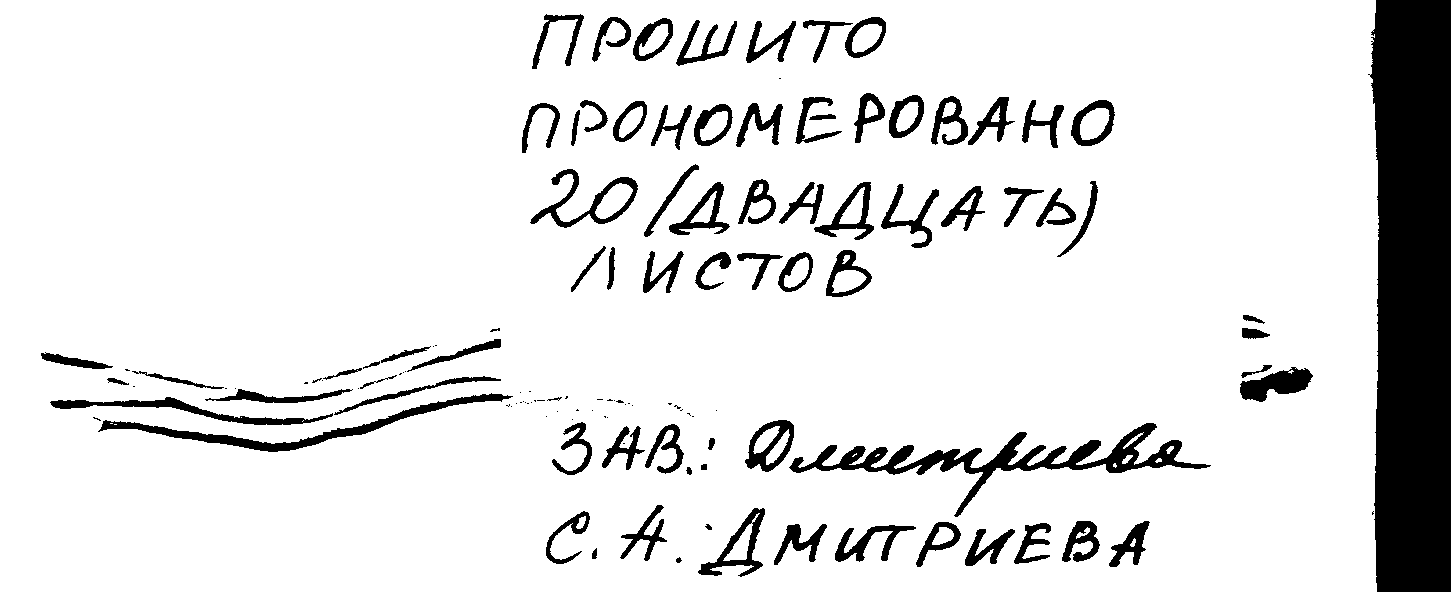 ПРОШИТО
ПРОНОМЕРОВАНО
20 (ДВАДЦАТЬ)
ЛИСТОВ
ЗАВ.: Дмитриева
С.А. ДМИТРИЕВА